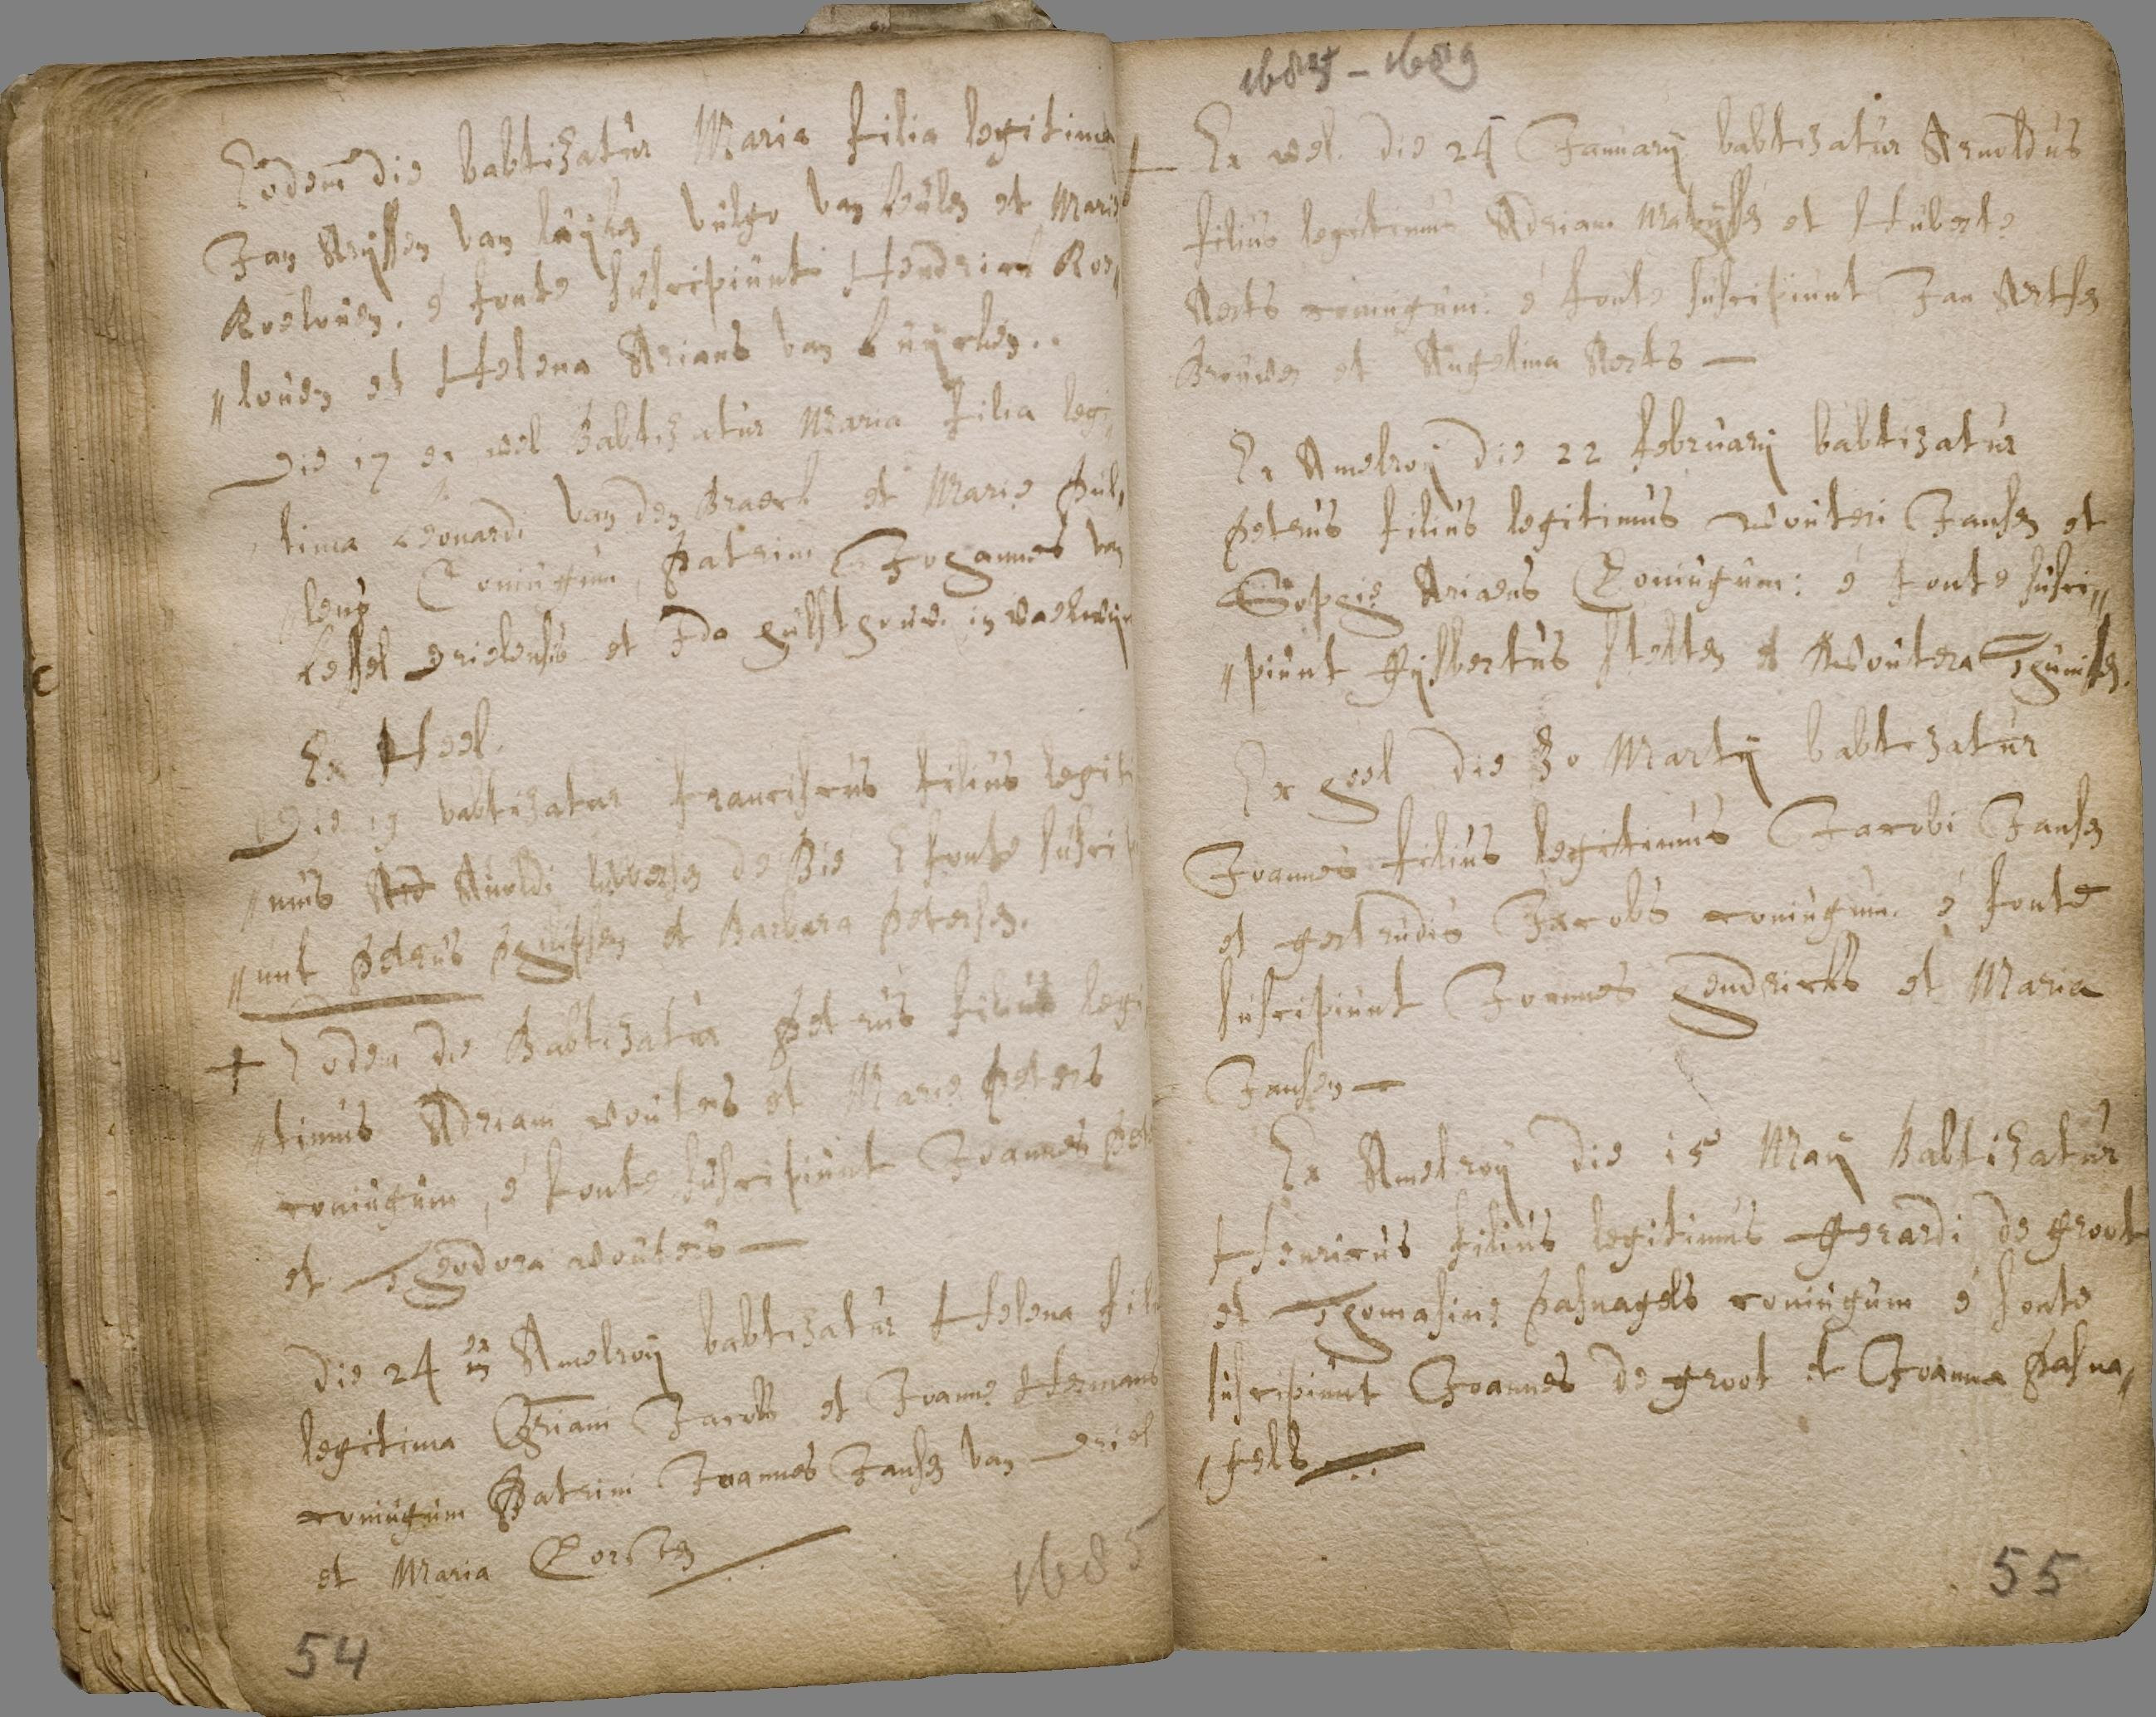 Eodem die babtisatur Maria filia legitima
Jan Aryssen van luyken vulgo van beulen et Marie
Roelouen. é fonte suscipiunt Hendrick Roe„
„louen et Helena Arians van Luycken..
Die 17 ex wel Babtisatur Maria filia legi„
„tima Leonardi van den Braeck et Marie Pul„
„lens Coniugum, Patrini Johannes van
tessel Drielensis et Ida hulsthout in waelwijc
Ex Heel.
Die 19 babtisatur franciscus filius legiti
„mus Ard Arnoldi de Bie E fonte susci
„unt Petrus et Barbara Petersen.
+ Eodem die Babtisatur Petrus filius legi
„timus Adriani wouters et Marie Peters
coniugum, é fonte suscipiunt Joannes Pet
et Theodora wouters —
Die 24 ex Amelroy babtisatur Helena fil
legitima Jacobs et Joanne Hermans
coniugum Patrini Joannes Jansen van Driel
et Maria Corsten
1685
54
1685 - 1689
+ Ex wel. die 24 January babtisatur Arnoldus
filius legitimus Adriani Matyssen et Huberte
Aerts coniugum: é fonte suscipiunt Jan Aertsen
Brouwer et Angelina Aerts —
Ex Amelroy die 22 february babtisatur
Petrus filius legitimus wouteri Jansen et
Sophie Ariaens Coniugum: é fonte susci„
„piunt Gysbertus stelten et Woutera Thunissen.
Ex heel die 30 Martij babtisatur
Joannes filius legitimus Jacobi Jansen
et gertrudis Jacobs coniugum. é fonte
suscipiunt Joannes hendricks et Maria
Jansen —
Ex Amelroy die 15 May Babtisatur
Henricus filius legitimus Gerardi de groot
et Thomasine Pasnagels coniugum é fonte
suscipiunt Joannes de groot et Joanna Pasna„
„gels
55